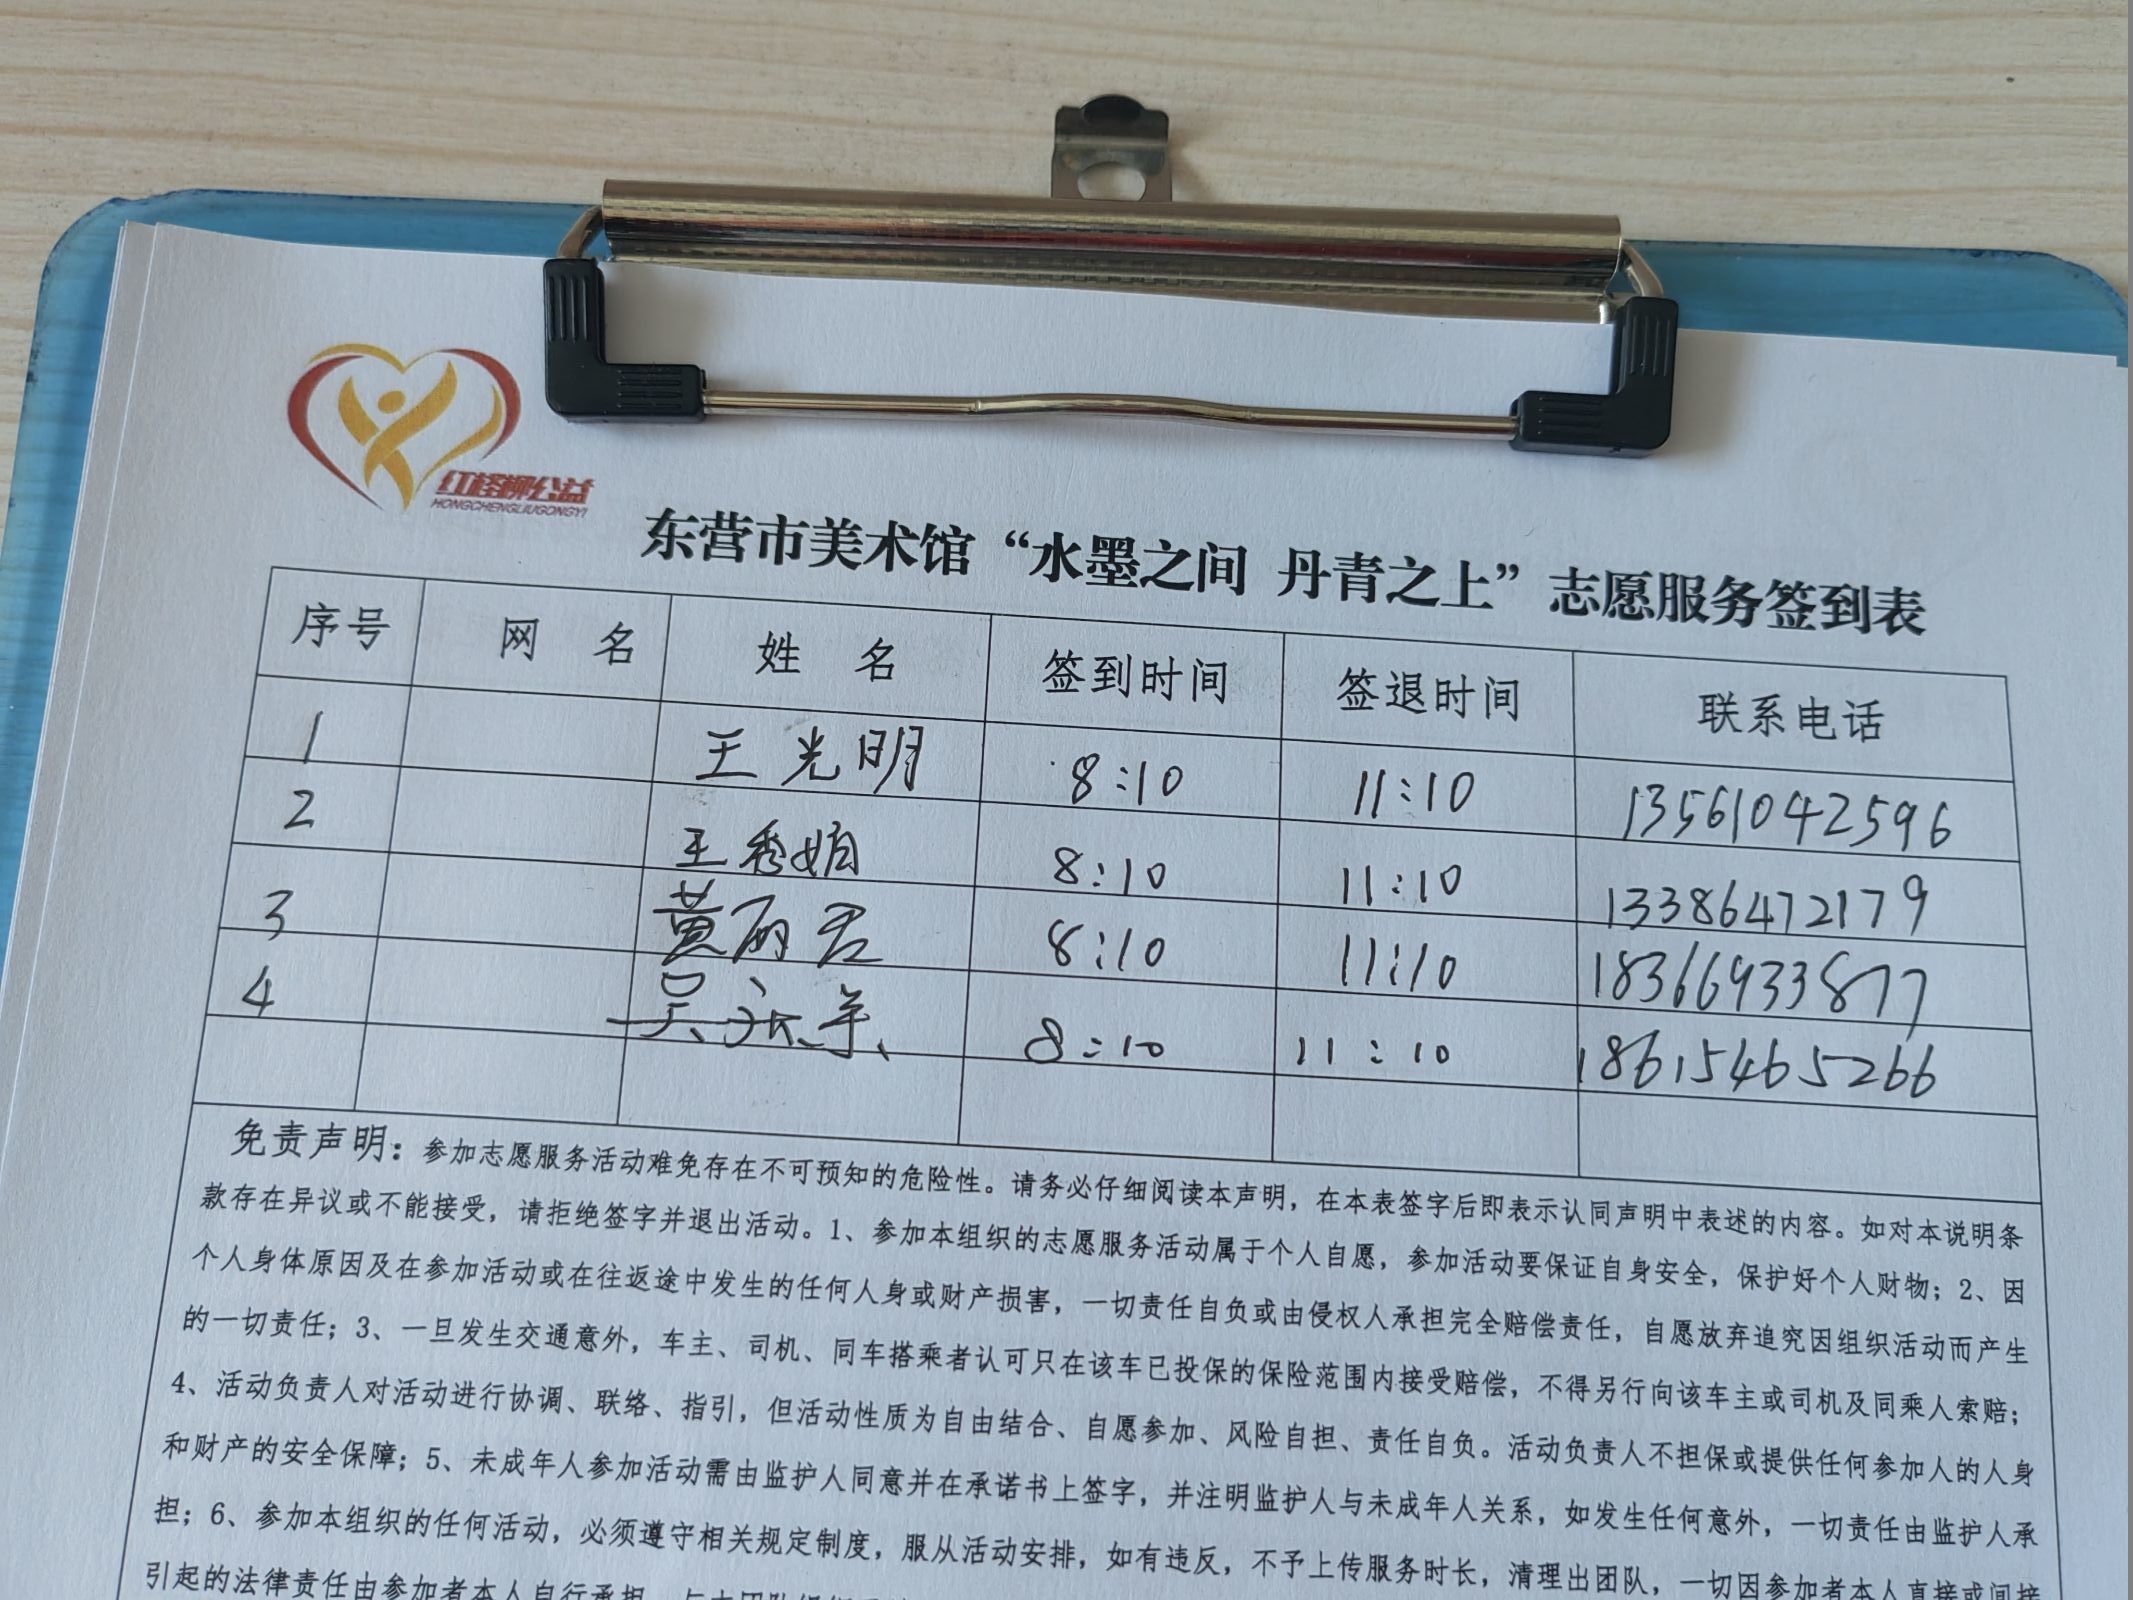 红柽柳公益
HONGCHENGLIUGONGYI
东营市美术馆“水墨之间 丹青之上”志愿服务签到表
序号 网 名 姓 名 签到时间 签退时间 联系电话
1 王光明 8:10 11:10 13561042596
2 王秀娟 8:10 11:10 13386472179
3 黄丽君 8:10 11:10 18366933877
4 吴 8:10 11:10 18615465266
免责声明：参加志愿服务活动难免存在不可预知的危险性。请务必仔细阅读本声明，在本表签字后即表示认同声明中表述的内容。如对本说明条
款存在异议或不能接受，请拒绝签字并退出活动。1、参加本组织的志愿服务活动属于个人自愿，参加活动要保证自身安全，保护好个人财物；2、因
个人身体原因及在参加活动或在往返途中发生的任何人身或财产损害，一切责任自负或由侵权人承担完全赔偿责任，自愿放弃追究因组织活动而产生
的一切责任；3、一旦发生交通意外，车主、司机、同车搭乘者认可只在该车已投保的保险范围内接受赔偿，不得另行向该车主或司机及同乘人索赔；
4、活动负责人对活动进行协调、联络、指引，但活动性质为自由结合、自愿参加、风险自担、责任自负。活动负责人不担保或提供任何参加人的人身
和财产的安全保障；5、未成年人参加活动需由监护人同意并在承诺书上签字，并注明监护人与未成年人关系，如发生任何意外，一切责任由监护人承
担；6、参加本组织的任何活动，必须遵守相关规定制度，服从活动安排，如有违反，不予上传服务时长，清理出团队，一切因参加者本人直接或间接
引起的法律责任由参加者本人自行承担